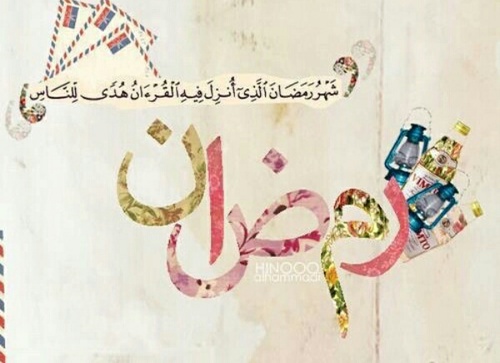 شَهْرُ رَمَضَانَ ٱلَّذِىٓ أُنزِلَ فِيهِ ٱلْقُرْءَانُ هُدًى لِّلنَّاسِ
رمضان
HINOOO
alhammadi
VIMTO